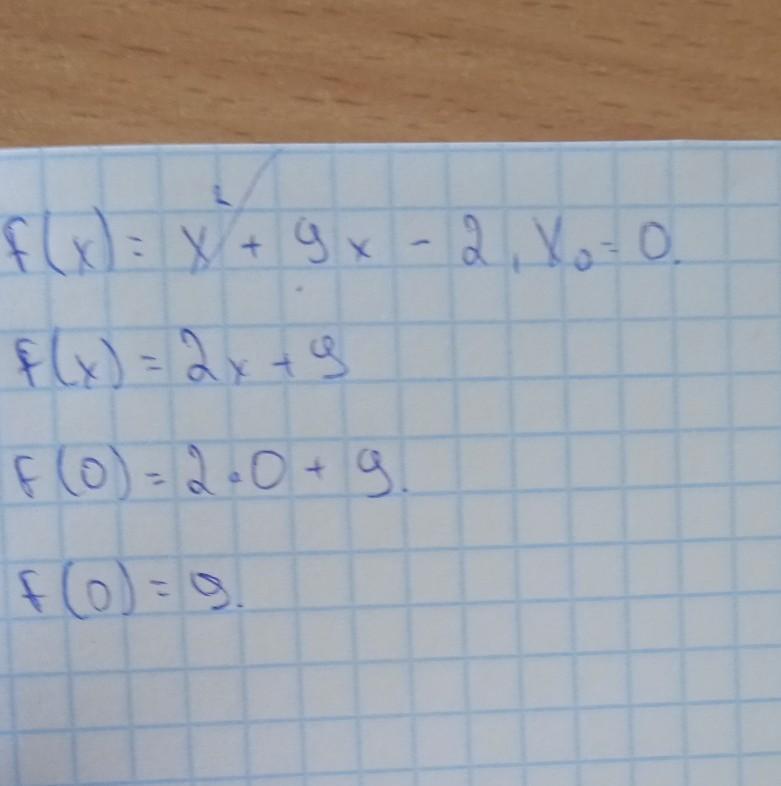 f(x) = x² + 9x - 2, x₀ = 0.
f(x) = 2x + 9
f(0) = 2·0 + 9.
f(0) = 9.